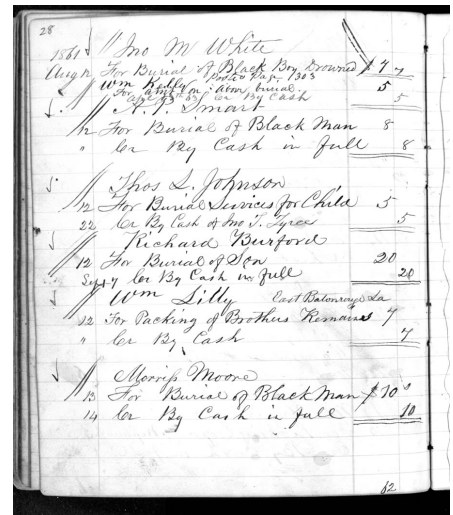 28
1861 Jno M White
Augt 12 For Burial of Black Boy Drowned $7 7
Wm Kelly Posted Page 1303
For amt on abov burial 5
Cr By Cash 5
A. T. Smart
12 For Burial of Black Man 8
" Cr By Cash in full 8
Thos L. Johnson
12 For Burial Services for Child 5
22 Cr By Cash of Jno T. Tyree 5
Richard Burford
12 For Burial of Son 20
Sept 7 Cr By Cash in full 20
Wm Lilly East Batonrouge La
12 For Packing of Brothers Remains 7
" Cr By Cash 7
Morriss Moore
13 For Burial of Black Man $10
14 Cr By Cash in full 10
62